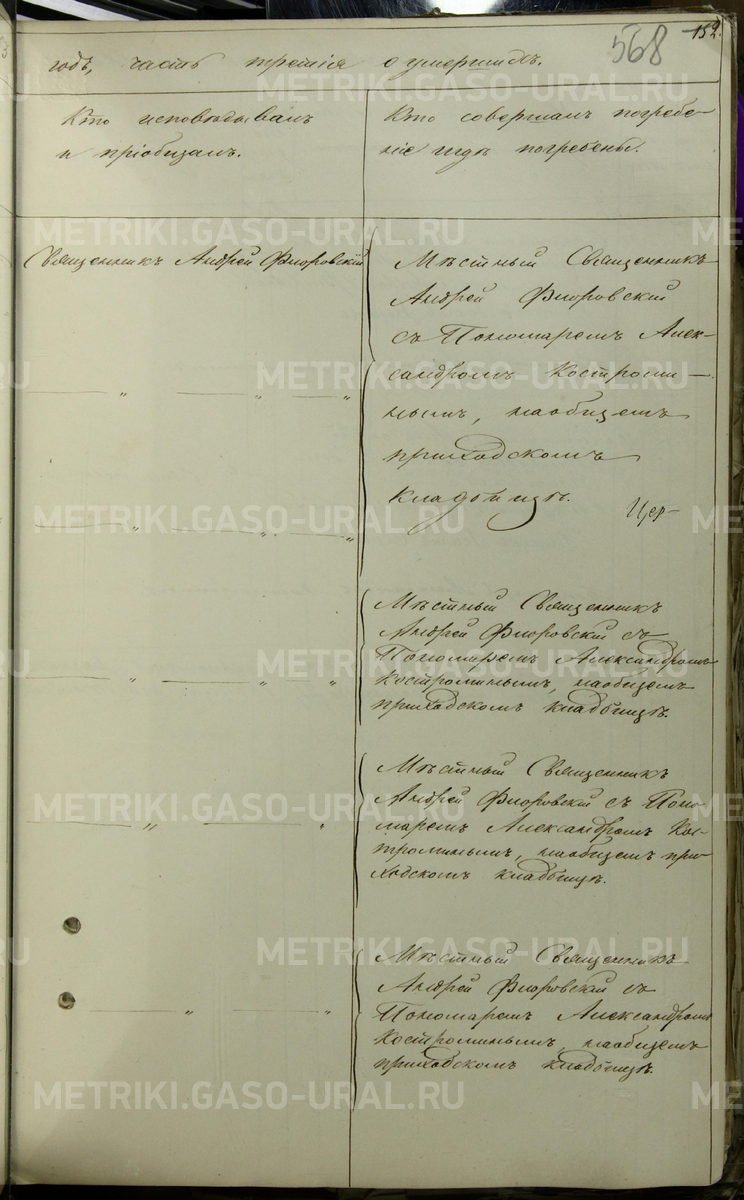 568
152.
годъ, часть третія о умершихъ.
Кто исповѣдывалъ
и пріобщалъ.
Кто совершалъ погребе-
ніе и гдѣ погребены.
Священникъ Андрей Флоровскій
Мѣстный Священникъ
Андрей Флоровскій
съ Пономаремъ Алек-
сандромъ Костроми-
нымъ, на общемъ
приходскомъ
кладбищѣ.
Мѣстный Священникъ
Андрей Флоровскій съ
Пономаремъ Александромъ
Костроминымъ, на общемъ
приходскомъ кладбищѣ.
Мѣстный Священникъ
Андрей Флоровскій съ Поно-
маремъ Александромъ Кос-
троминымъ, на общемъ при-
ходскомъ кладбищѣ.
Мѣстный Священникъ
Андрей Флоровскій съ
Пономаремъ Александромъ
Костроминымъ, на общемъ
приходскомъ кладбищѣ.
METRIKI.GASO-URAL.RU